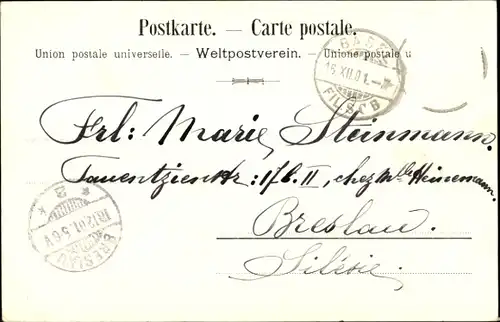 Postkarte. — Carte postale.
Union postale universelle. — Weltpostverein. — Unione postale u
BASEL
15.XII.01.
FIL. S.C.B
Frl: Marie Steinmann.
Tauentzienstr: 17b. II, chez Mlle Heinemann.
Breslau.
Silésie.
BRESLAU
16.12.01. 5-6 V